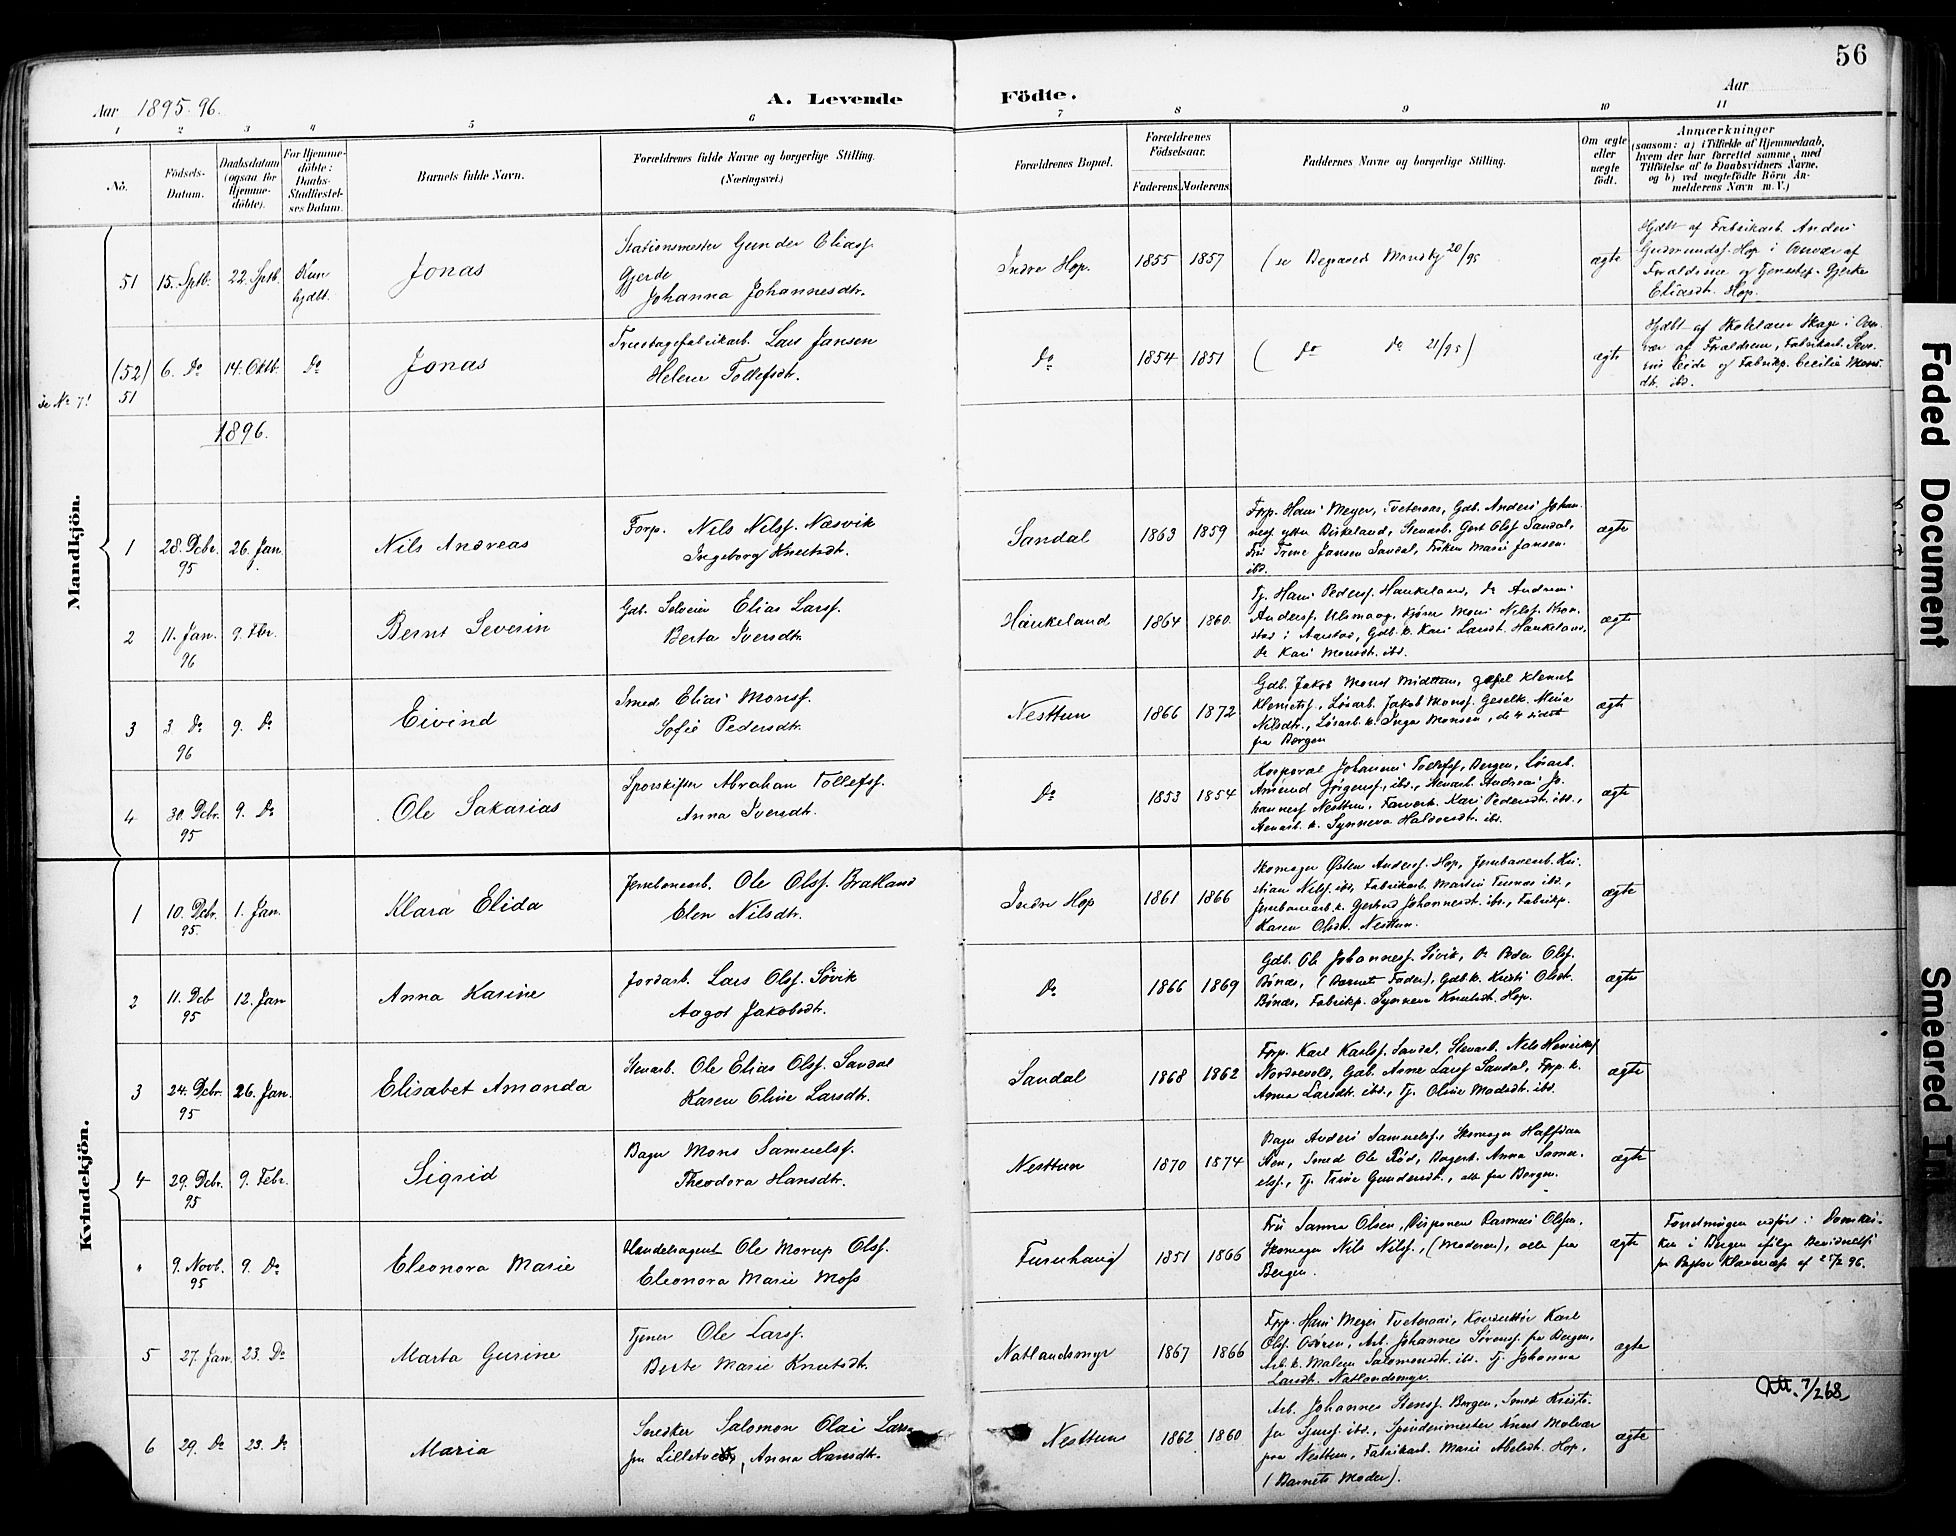 56
Aar 1895-96.
A. Levende Födte.
Aar
1 2 3 4 5 6 7 8 9 10 11
No.
Födsels-Datum.
Daabsdatum (ogsaa for Hjemme-döbte).
For Hjemme-döbte: Daabs-Stadfæstel-ses Datum.
Barnets fulde Navn.
Forældrenes fulde Navne og borgerlige Stilling. (Næringsvei.)
Forældrenes Bopæl.
Forældrenes Födselsaar.
Faderens. Moderens.
Faddernes Navne og borgerlige Stilling.
Om ægte eller uægte födt.
Anmærkninger (saasom: a) i Tilfælde af Hjemmedaab, hvem der har forrettet samme, med Tilföielse af to Daabsvidners Navne, og b) ved uægtefödte Börn An-melderens Navn m. V.)
Mandkjön.
51 15. Sptb. 22. Sptb. Kun hjdbt. Jonas
Stationsmester Gunder Eliass. Gjerde
Johanna Johannesdtr.
Indre Hop. 1855 1857 (se Begravede Mandkj 20/95 ægte
Hjdbt af Fabrikarb. Anders
Gudmundss. Hop i Overvær af
Forældrene og Tjenestep. Gjerke
Eliasdt. Hop.
se No 7!
(52) 51 6. Do 14. Oktb. Do Jonas
Træstagefabrikarb. Lars Jansen
Helene Tollefsdt.
Do 1854 1851 ( Do Do 21/95) ægte
Hjdbt af Skolelærer Skage i Over-
vær af Forældrene, Fabrikarb. Seve-
rin Eide og Fabrikp. Cecilie Mons-
dt. ibd.
1896.
1 28. Dcbr. 95 26. Jan. Nils Andreas
Forp. Nils Nilss. Næsvik
Ingeborg Knutsdt.
Sandal 1863 1859
Frp. Hans Meyer, Tveteraas, Gdb. Anders Johan-
ness ytre Birkeland, Stenarb. Gert Olss Sandal,
Fru Trine Jansen Sandal, Frøken Marie Jansen
ibd.
ægte
2 11. Jan. 96 9. Fbr. Bernt Severin
Gdb. Selveier Elias Larss.
Berta Iversdtr.
Haukeland 1864 1860
Tj. Hans Pederss. Haukeland, Do Andreas
Anderss. Ulsmaag, Kjører Mons Nilss. Kron-
stad i Aarstad, Gdb. k. Kari Larsdt. Haukeland,
Do Kari Monsdt. ibd.
ægte
3 3 Do 96 9. Do Eivind
Smed Elias Monss.
Sofie Pedersdtr.
Nesttun 1866 1872
Gdb. Jakob Monss Midttun,
Løsarb. Jakob Monss. Geselk. Mina
Nilsdt., Løsarb. k. Inga Monsen, de 4 sidste
fra Bergen
ægte
4 30. Dcbr. 95 9. Do Ole Sakarias
Sporskifter Abraham Tollefss.
Anna Iversdt.
Do 1853 1854
Korporal Johannes Tollefss, Bergen, Løsarb.
Amund Jørgenss., ibd., Stenarb. Andreas Jo-
hanness Nesttun, Kari Pedersdt. ibd.,
Stenarb. k. Synneva Haldorsdt. ibd.
ægte
Kvindekjön.
1 10. Dcbr. 95. 1. Jan. Klara Elida
Jernbanearb. Ole Olss. Bratland
Elen Nilsdtr.
Indre Hop 1861 1866
Skomager Østen Anderss. Hop, Jernbanearb. Kri-
stian Nilss. ibd, Fabrikarb. Martin ibd.,
Jernbanearb. k. Gertrud Johannesdt. ibd., Fabrikp.
Karen Olsdt. Nesttun.
ægte
2 11. Dcb 95 12. Jan Anna Karine
Jordarb. Lars Olss. Søvik
Aagot Jakobsdtr.
Do 1866 1869
Gdb. Ole Johanness. Søvik, Do Peder Olss.
Bønæs, (Barnets Fader), Gdb. k. Kristi Olsdt.
Bønæs, Fabrikp. Synneva Knutsdt. Hop.
ægte
3 24. Dcbr. 95 26. Jan. Elisabet Amanda
Stenarb. Ole Elias Olss. Sandal
Karen Oline Larsdtr.
Sandal 1868 1862
Frp. Karl Karlss. Sandal, Stenarb. Nils Henrikss
Nordrevold, Gdb. Arne Larss Sandal, Frp. k.
Anna Larsdtr. ibd., Tj. Oline Madsdt. ibd.
ægte
4 29. Dcbr. 95 9. Febr. Sigrid
Bager Mons Samuelss.
Theodora Hansdtr.
Nesttun 1870 1874
Bager Anders Samuelss., Skomager Halfdan
Sten, Smed Ole Rød, Bagerk. Anna Samu-
elss., Tj. Trine Gundersdt., alle fra Bergen.
ægte
" 9. Novb. 95 9. Do Eleonora Marie
Handelsagent Ole Morup Olss.
Eleonora Marie Moss
Furuhaug 1851 1866
Fru Sanna Olsen, Disponent Rasmus Olsen,
Skomager Nils Nilss., (Moderen), alle fra
Bergen.
ægte
Forretningen udført i Domkir-
ken i Bergen ifølge Bevidnelse
fr Klaveness af 25/2 96.
5 27. Jan. 23. Do Marta Gurine
Tjener Ole Larss.
Berte Marie Knutsdt.
Natlandsmyr 1867 1866
Frp. Hans Meyer Tveteraas, Konduktør Karl
Olss. Osøren, Arb. Johannes Sørenss. fra Bergen,
Arb. k. Malene Salomonsdt. ibd. Tj. Johanna
Larsdt. Natlandsmyr.
ægte
Att. 7/2 68
6 29. Do 23. Do Maria
Snedker Salomon Olai Lars
fra Lilletvedt, Anna Hansdtr.
Nesttun 1862 1860
Arb. Johannes Stenss. Bergen, Smed Kristo-
fer Sjurss. ibd., Spinderimester Knut Molvær
paa Nesttun, Fabrikarb. Marie Abelsdt. Hop,
(Barnets Moder).
ægte
Faded Document
Smeared In